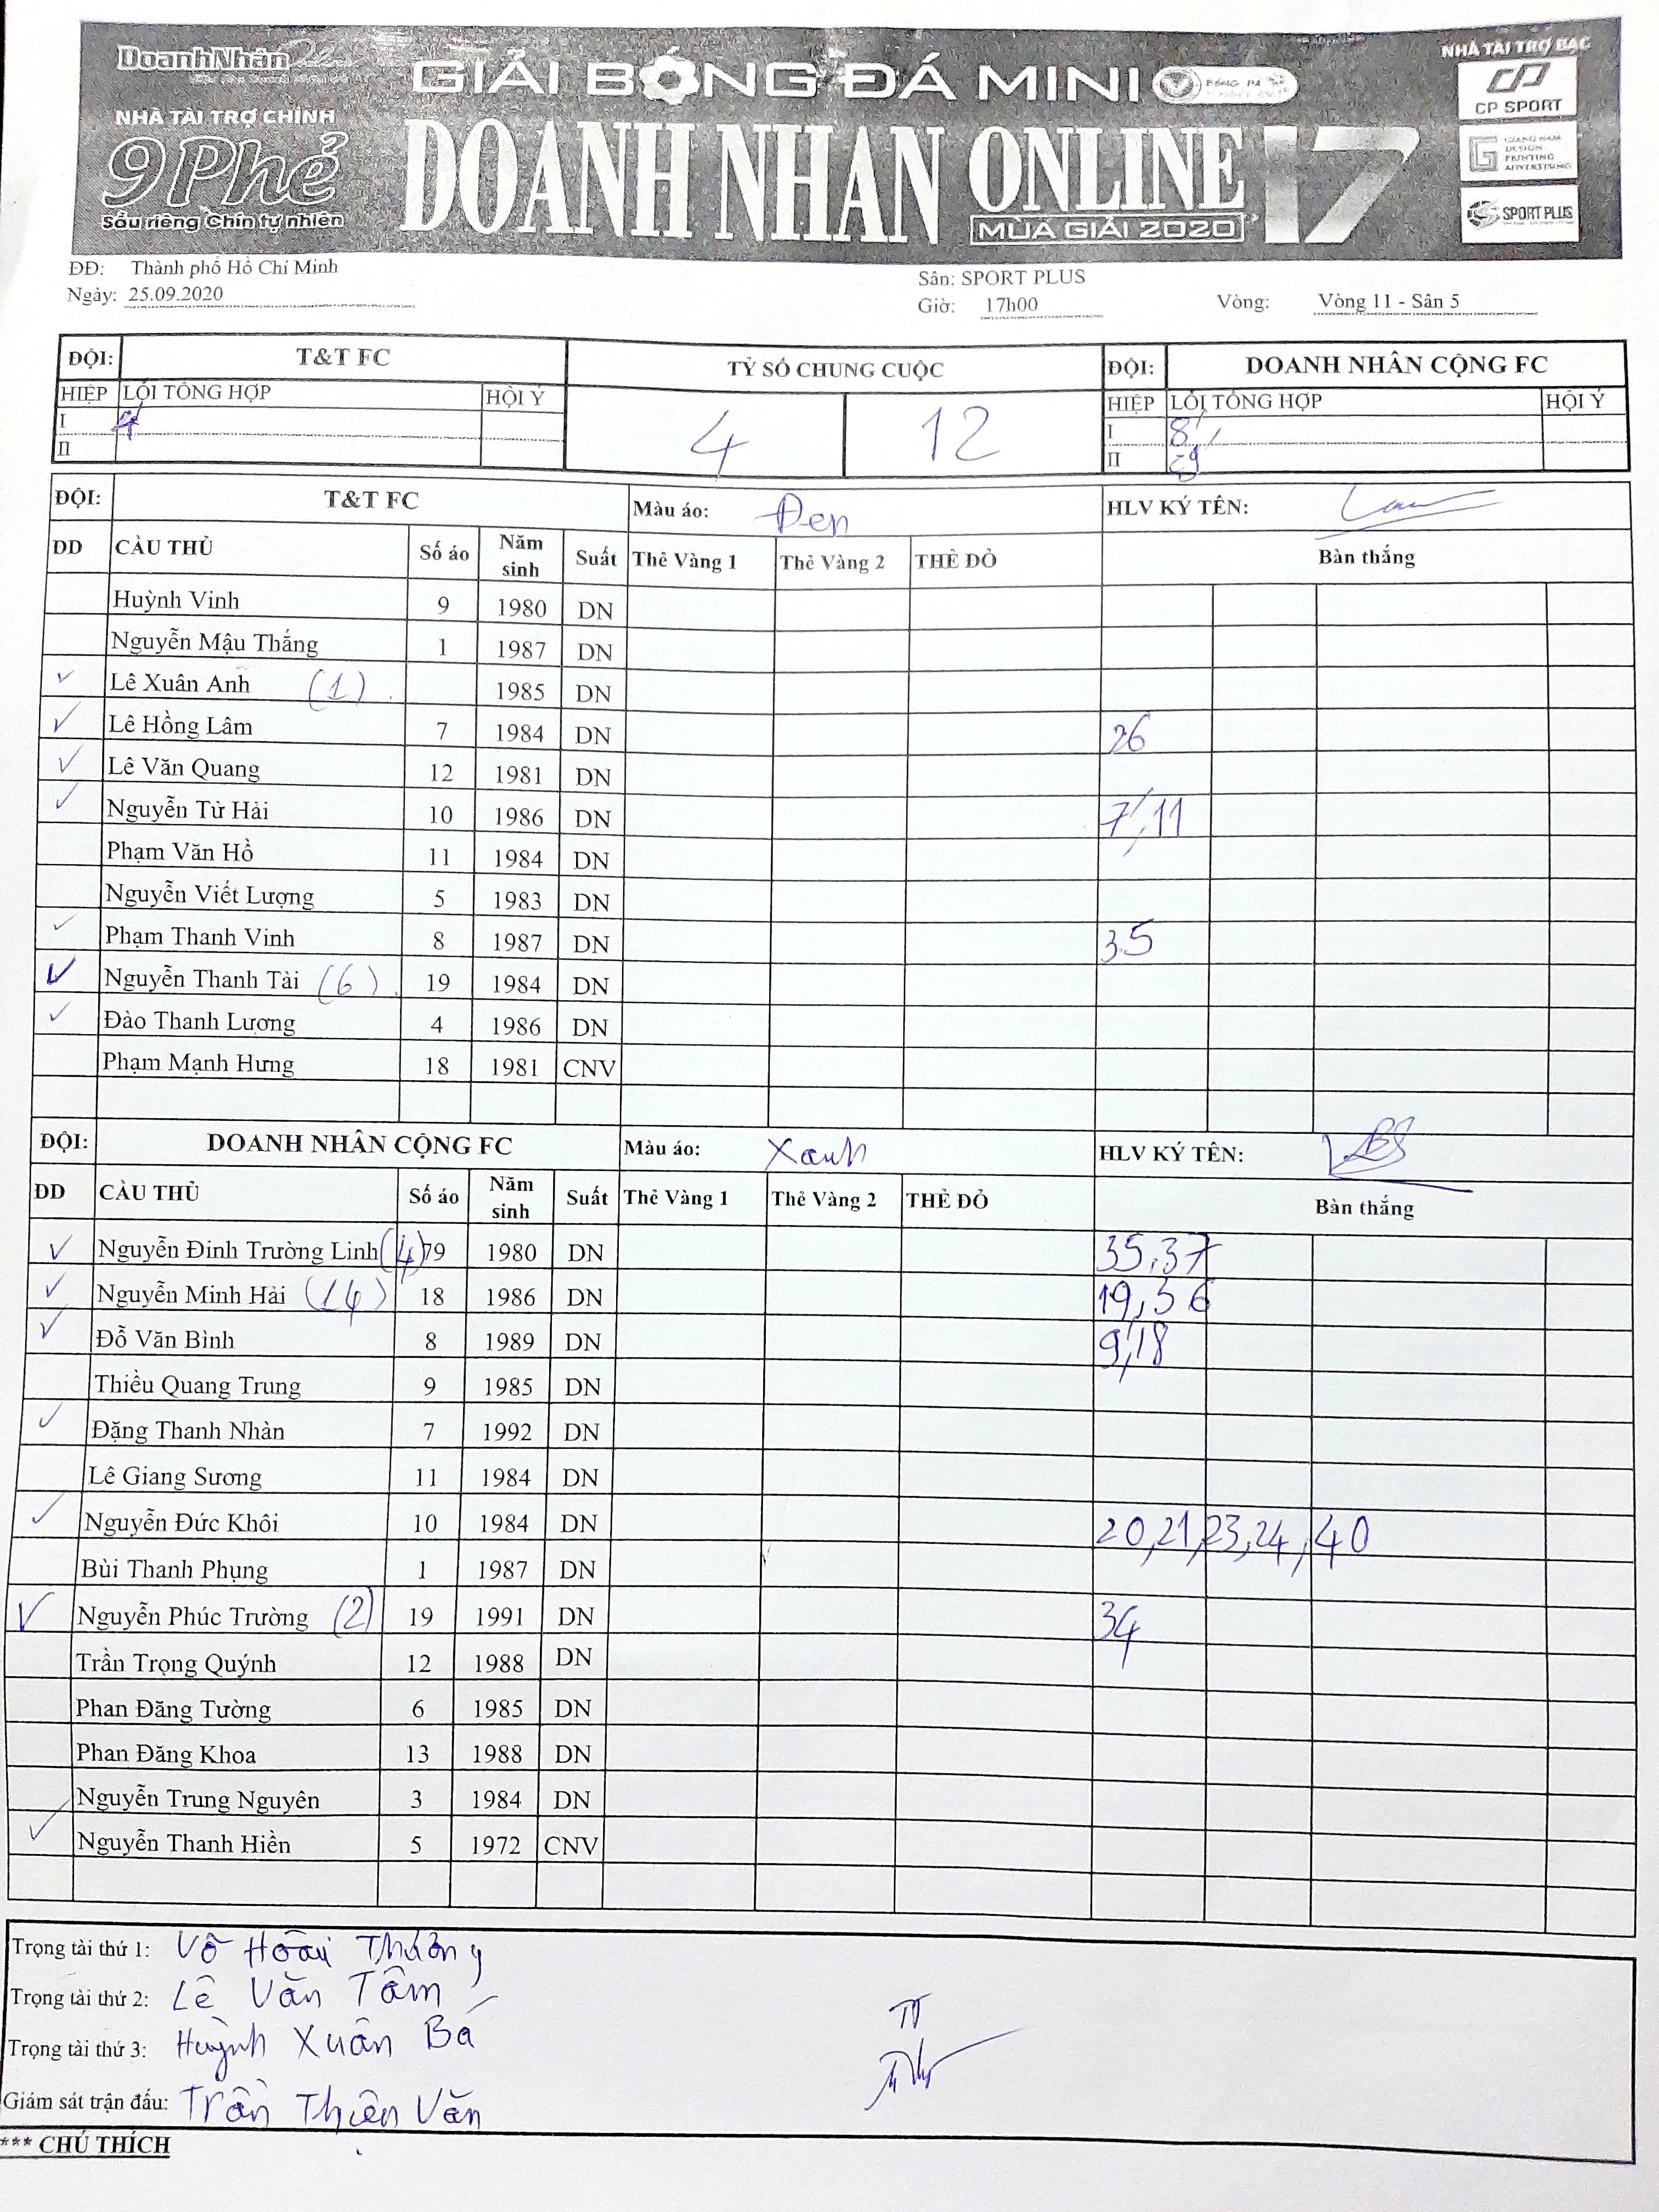 DoanhNhân
GIẢI BÓNG ĐÁ MINI
NHÀ TÀI TRỢ BẠC
CP SPORT
NHÀ TÀI TRỢ CHÍNH
9Phẻ
Sầu riêng Chín tự nhiên
DOANH NHAN ONLINE 17
MÙA GIẢI 2020
GIANG NAM
DESIGN
PRINTING
ADVERTISING
SPORT PLUS
ĐĐ: Thành phố Hồ Chí Minh
Sân: SPORT PLUS
Ngày: 25.09.2020
Giờ: 17h00
Vòng: Vòng 11 - Sân 5
ĐỘI: T&T FC TỶ SỐ CHUNG CUỘC ĐỘI: DOANH NHÂN CỘNG FC
HIỆP LỖI TỔNG HỢP HỘI Ý 4 12 HIỆP LỖI TỔNG HỢP HỘI Ý
I I 8'
II II
ĐỘI: T&T FC Màu áo: Đen HLV KÝ TÊN:
DD CẦU THỦ Số áo Năm sinh Suất Thẻ Vàng 1 Thẻ Vàng 2 THẺ ĐỎ Bàn thắng
Huỳnh Vinh 9 1980 DN
Nguyễn Mậu Thắng 1 1987 DN
✓ Lê Xuân Anh (1) 1985 DN
✓ Lê Hồng Lâm 7 1984 DN 26
✓ Lê Văn Quang 12 1981 DN
✓ Nguyễn Tử Hải 10 1986 DN 7', 11
Phạm Văn Hồ 11 1984 DN
Nguyễn Viết Lượng 5 1983 DN
✓ Phạm Thanh Vinh 8 1987 DN 35
✓ Nguyễn Thanh Tài (6) 19 1984 DN
✓ Đào Thanh Lương 4 1986 DN
Phạm Mạnh Hưng 18 1981 CNV
ĐỘI: DOANH NHÂN CỘNG FC Màu áo: Xanh HLV KÝ TÊN:
DD CẦU THỦ Số áo Năm sinh Suất Thẻ Vàng 1 Thẻ Vàng 2 THẺ ĐỎ Bàn thắng
✓ Nguyễn Đình Trường Linh (4) 79 1980 DN 35, 37
✓ Nguyễn Minh Hải (14) 18 1986 DN 19, 36
✓ Đỗ Văn Bình 8 1989 DN 9', 18
Thiều Quang Trung 9 1985 DN
✓ Đặng Thanh Nhàn 7 1992 DN
Lê Giang Sương 11 1984 DN
✓ Nguyễn Đức Khôi 10 1984 DN 20, 21, 23, 24, 40
Bùi Thanh Phụng 1 1987 DN
✓ Nguyễn Phúc Trường (2) 19 1991 DN 34
Trần Trọng Quýnh 12 1988 DN
Phan Đăng Tường 6 1985 DN
Phan Đăng Khoa 13 1988 DN
Nguyễn Trung Nguyên 3 1984 DN
✓ Nguyễn Thanh Hiền 5 1972 CNV
Trọng tài thứ 1: Võ Hoài Thưởng
Trọng tài thứ 2: Lê Văn Tâm
Trọng tài thứ 3: Huỳnh Xuân Bá
Giám sát trận đấu: Trần Thiện Văn
TT
*** CHÚ THÍCH